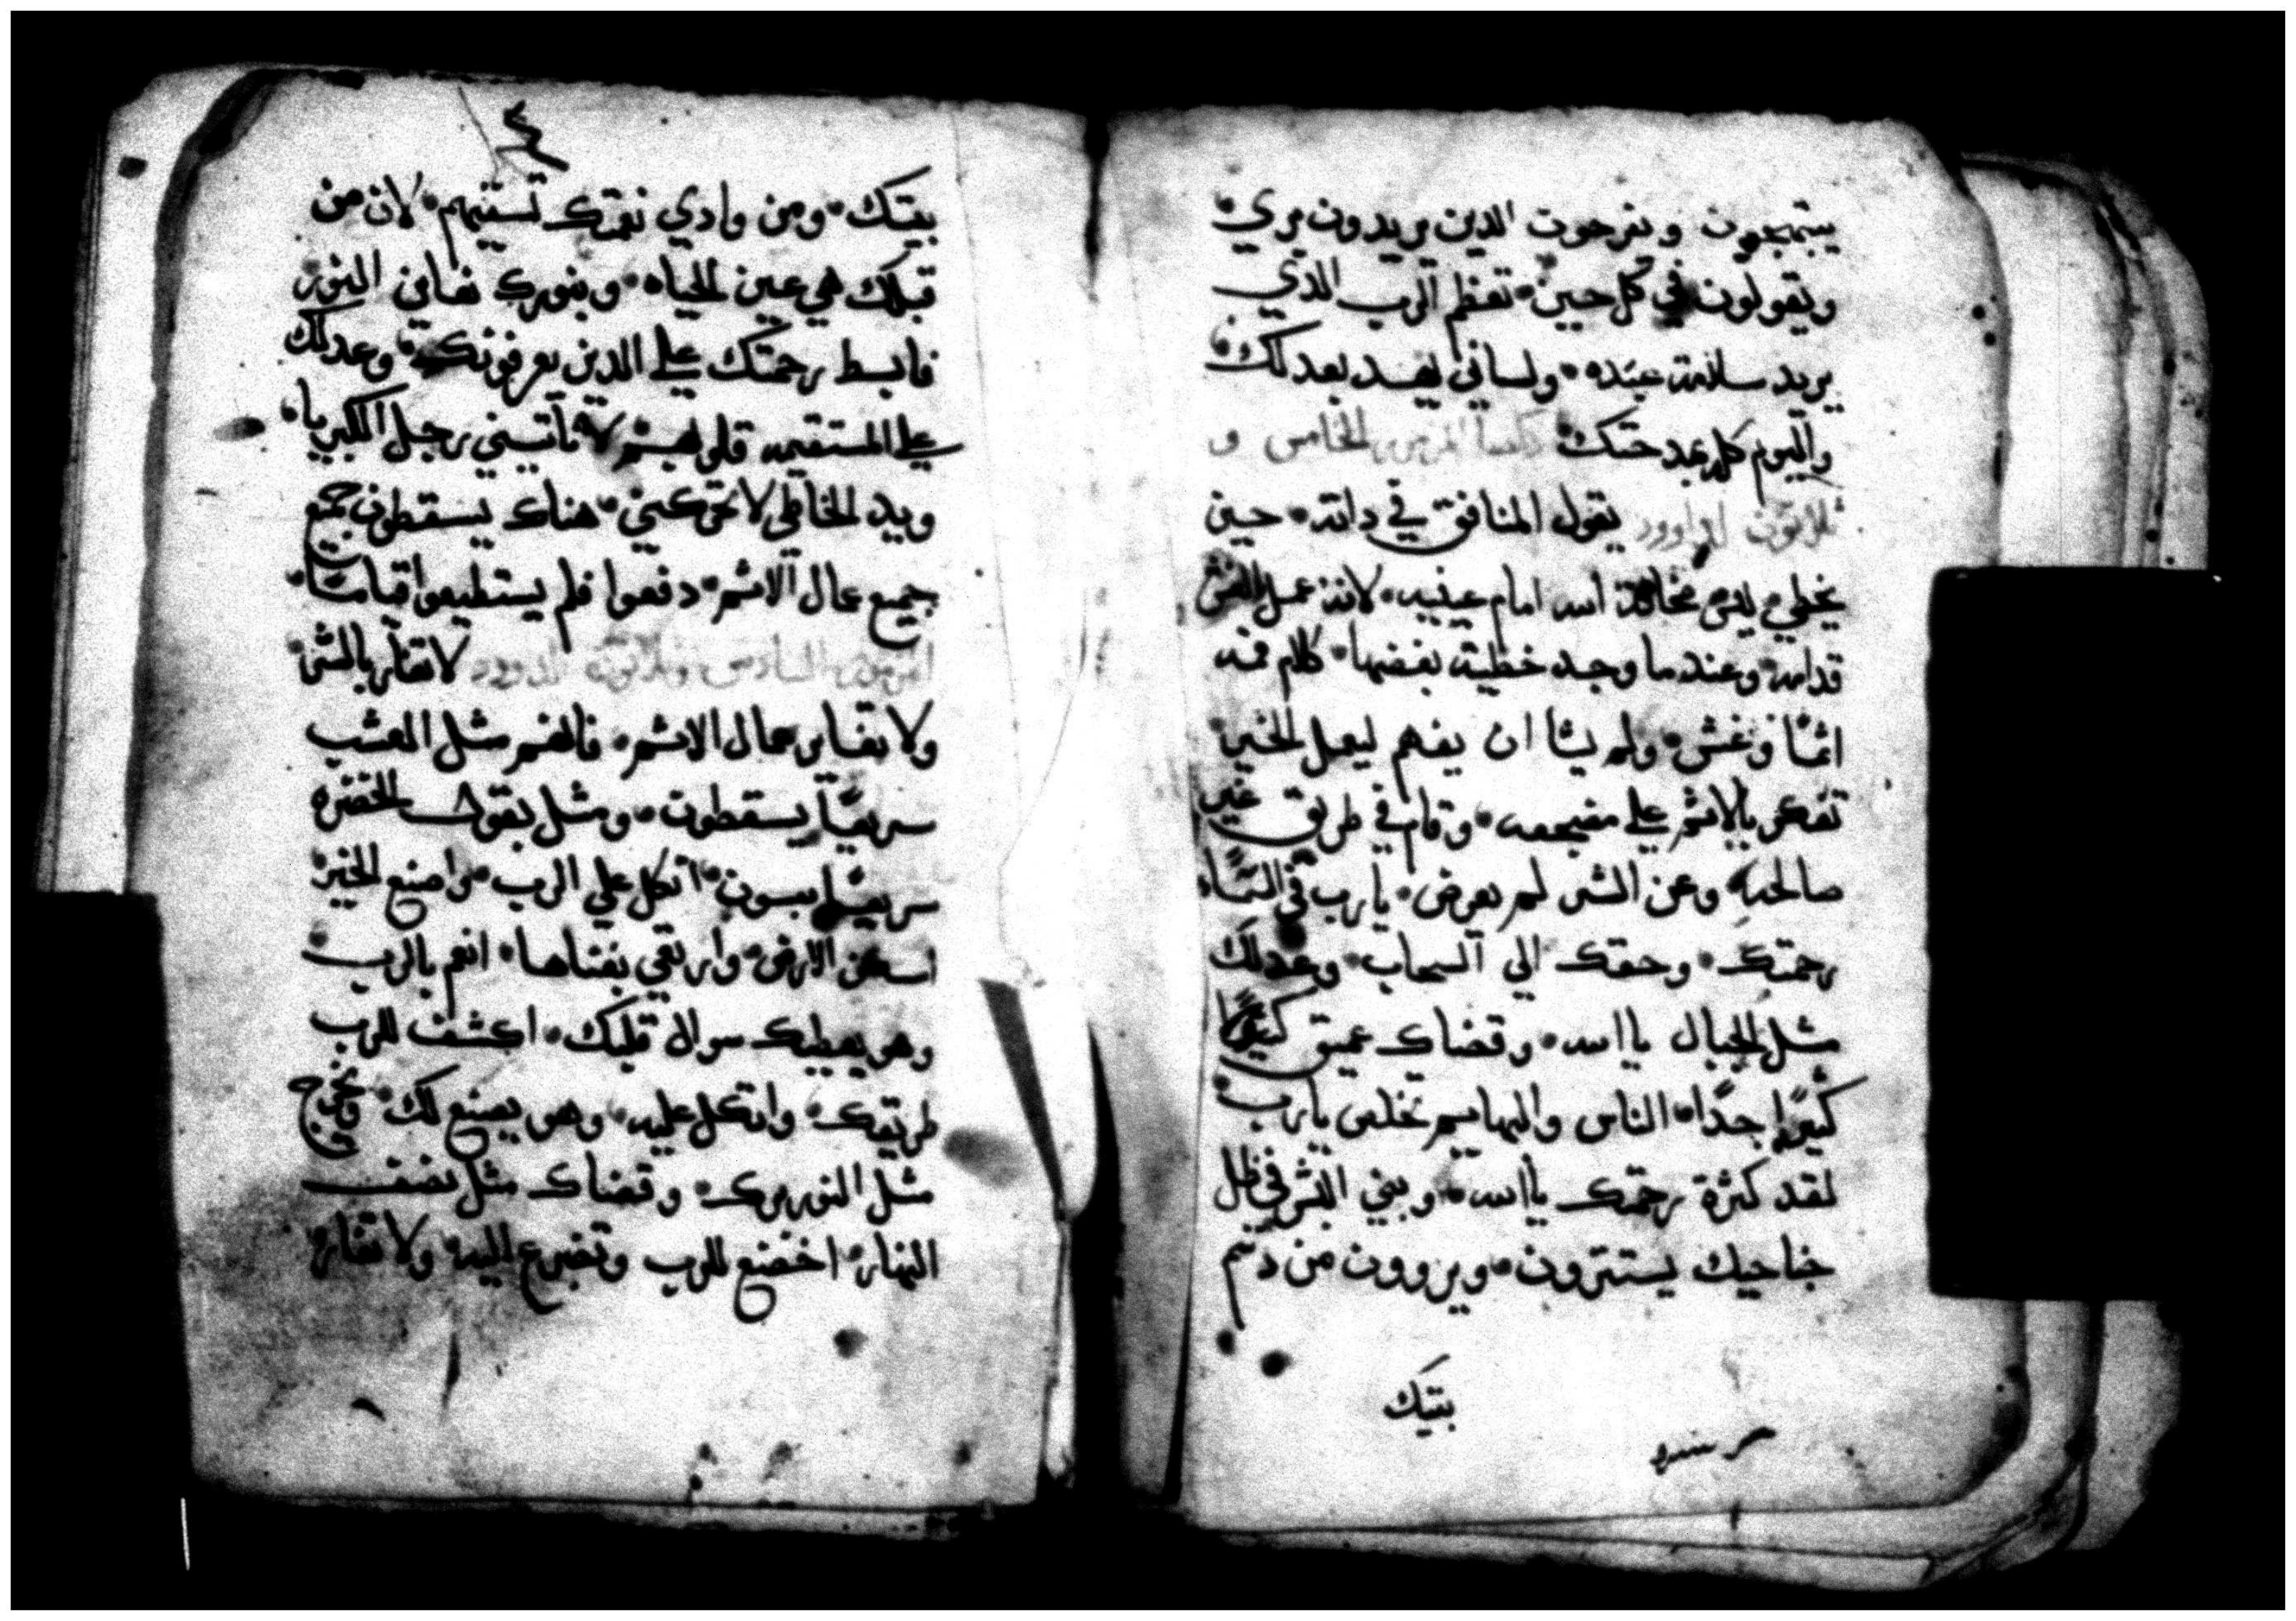 يبتهجون ويفرحون الدين يريدون بري
ويقولون في كل حين تعظم الرب الذي
يريد سلامة عبده ولساني يهد بعدلك
واليوم كله بمدحتك المزمور الخامس و
ثلاثون لداوود يقول المنافق في داته حين
يخطي ليس مخافة الله امام عينيه لانه عمل الغش
قدامه وعند ما وجد خطيته بغضها كلام فمه
اثمًا وغش ولم يشا ان يفهم ليعمل الخير
تفكر بالاثم علي مضجعه وقام في طريق غير
صالحه وعن الشر لم يعرض يارب في السما
رحمتك وحقك الي السحاب وعدلك
مثل الجبال ياالله وقضاك عميق كثيرًا
كثيرًا جدًا الناس والبهايم تخلص يارب
لقد كثرة رحمتك ياالله وبني البشر في ظل
جناحيك يستترون ويروون من دسم
بيتك
بيتك ومن وادي نعمتك تسقيهم لان من
قبلك هي عين الحياه وبنورك نعاين النور
فابسط رحمتك علي الدين يعرفونك وعدلك
علي المستقيمه قلوبهم لا تاتيني رجل الكبريا
ويد الخاطي لا تحركني هناك يسقطون جميع
جميع عمال الاثم دفعوا فلم يستطيعوا قيامًا
المزمور السادس وثلاثون لداوود لا تغاير بالشر
ولا تغاير عمال الاثم فانهم مثل العشب
سريعًا يسقطون ومثل بقول الخضره
سريعًا ييبسون اتكل علي الرب واصنع الخير
اسكن الارض وارتعي بغناها انعم بالرب
وهو يعطيك سوال قلبك اكشف للرب
طريقك واتكل عليه وهو يصنع لك ويخرج
مثل النور برك وقضاك مثل نصف
النهار اخضع للرب وتضرع اليه ولا تغاير